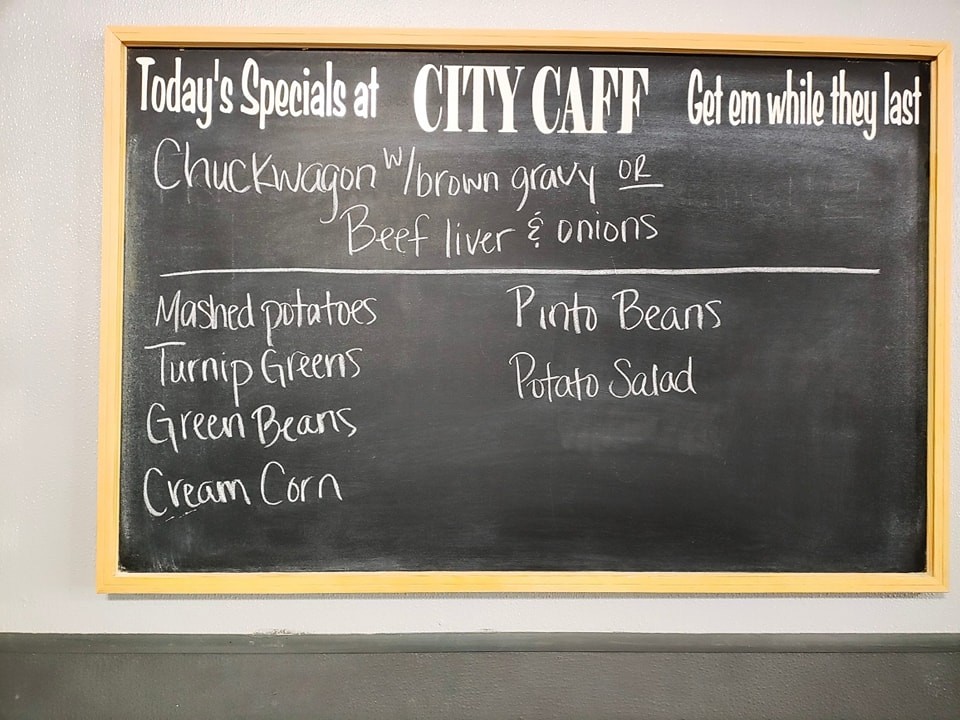 Today's Specials at CITY CAFF Get em while they last
Chuckwagon w/brown gravy OR
Beef liver & onions
Mashed potatoes
Turnip Greens
Green Beans
Cream Corn
Pinto Beans
Potato Salad